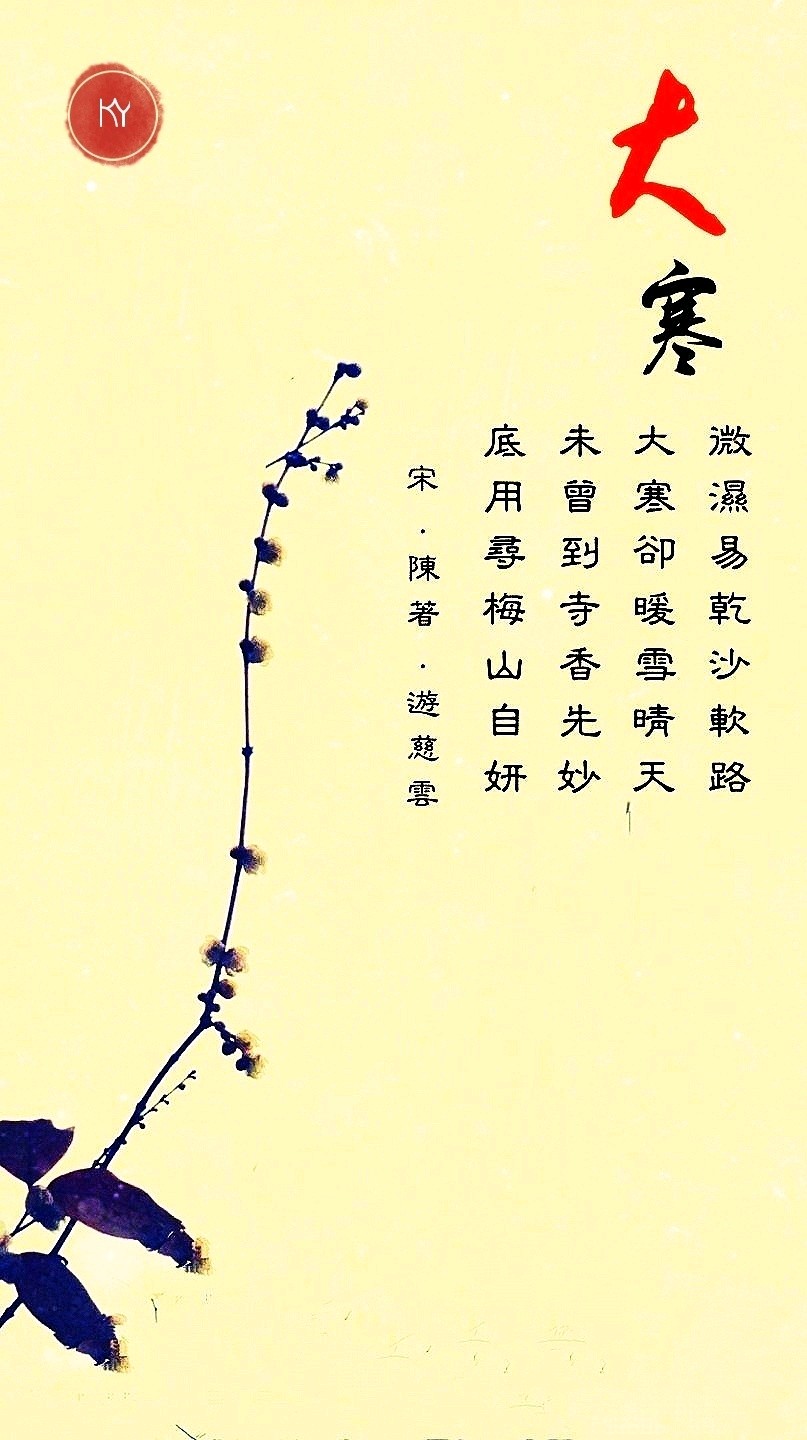 KY
大寒
微濕易乾沙軟路
大寒卻暖雪晴天
未曾到寺香先妙
底用尋梅山自妍
宋·陳著·遊慈雲